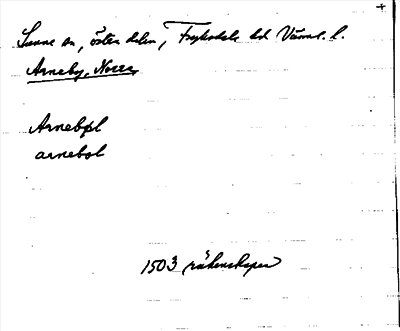 Sunne sn, östra delen, Fryksdals hd Värml. l.
Arneby, Norra
Arnebøl
arnebol
1503 räkenskaper